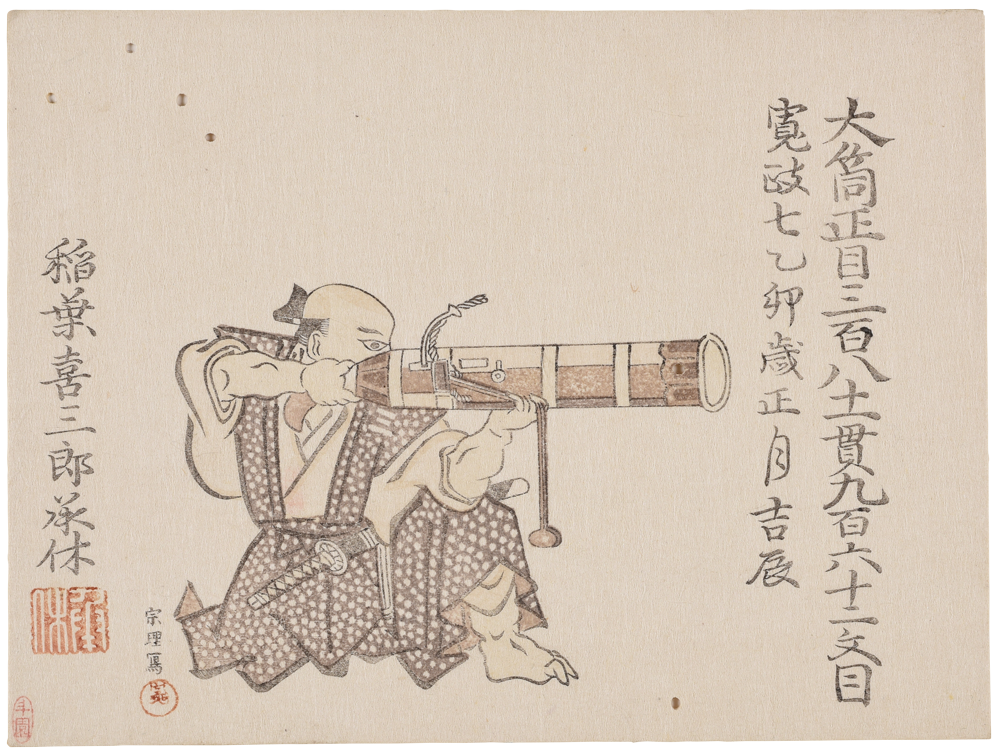 大筒正目三百八十一貫九百六十二文目
寛政七乙卯歳正月吉辰
稲葉喜三郎承休
宗理寫